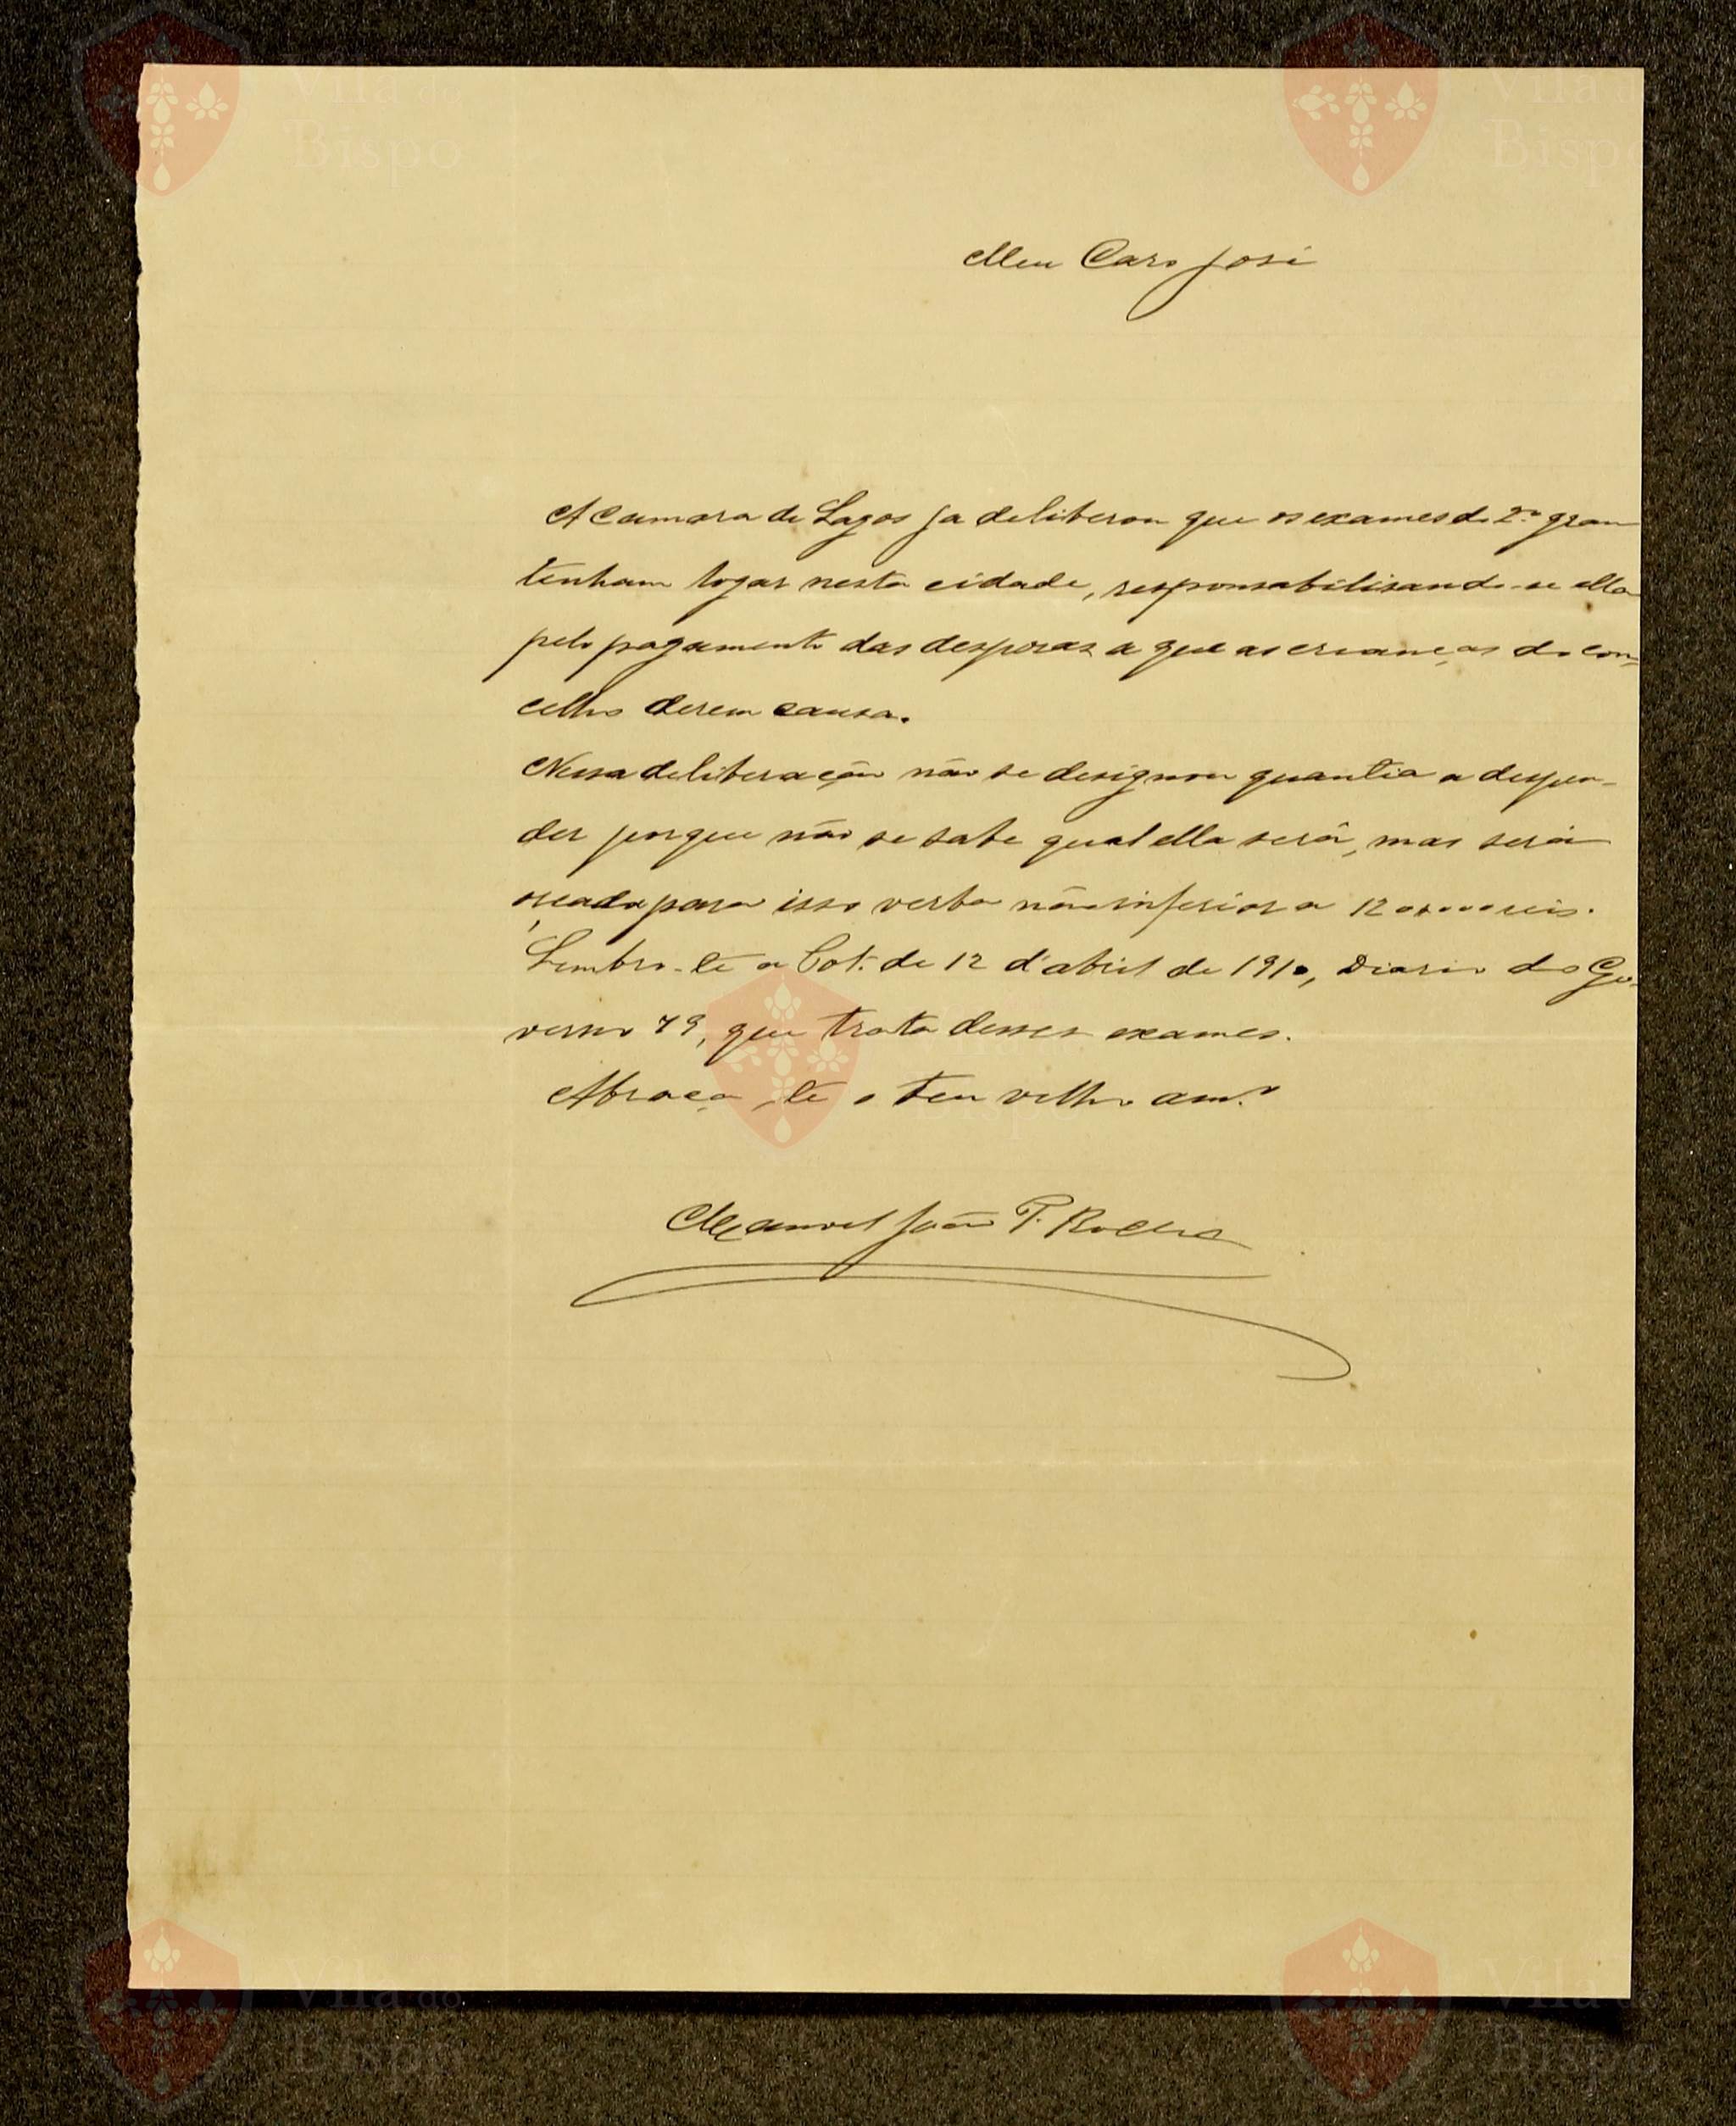 Meu Caro José
A Camara de Lagos ja deliberou que os exames do 2.º grau
tenham logar nesta cidade, responsabilisando-se ella
pelo pagamento das despezas a que as creanças do con-
celho derem causa.
Nessa deliberação não se designou quantia a despen-
der porque não se sabe qual ella será, mas será
orçada para isso verba não inferior a reis.
Lembro-te a de 12 d'abril de 1910, Diario do Go-
verno 79, que trata desses exames.
Abraça-te o teu velho am.º
Manoel João P. Rocha
Vila do
Bispo
Vila do
Bispo
Vila do
Bispo
Vila do
Bispo